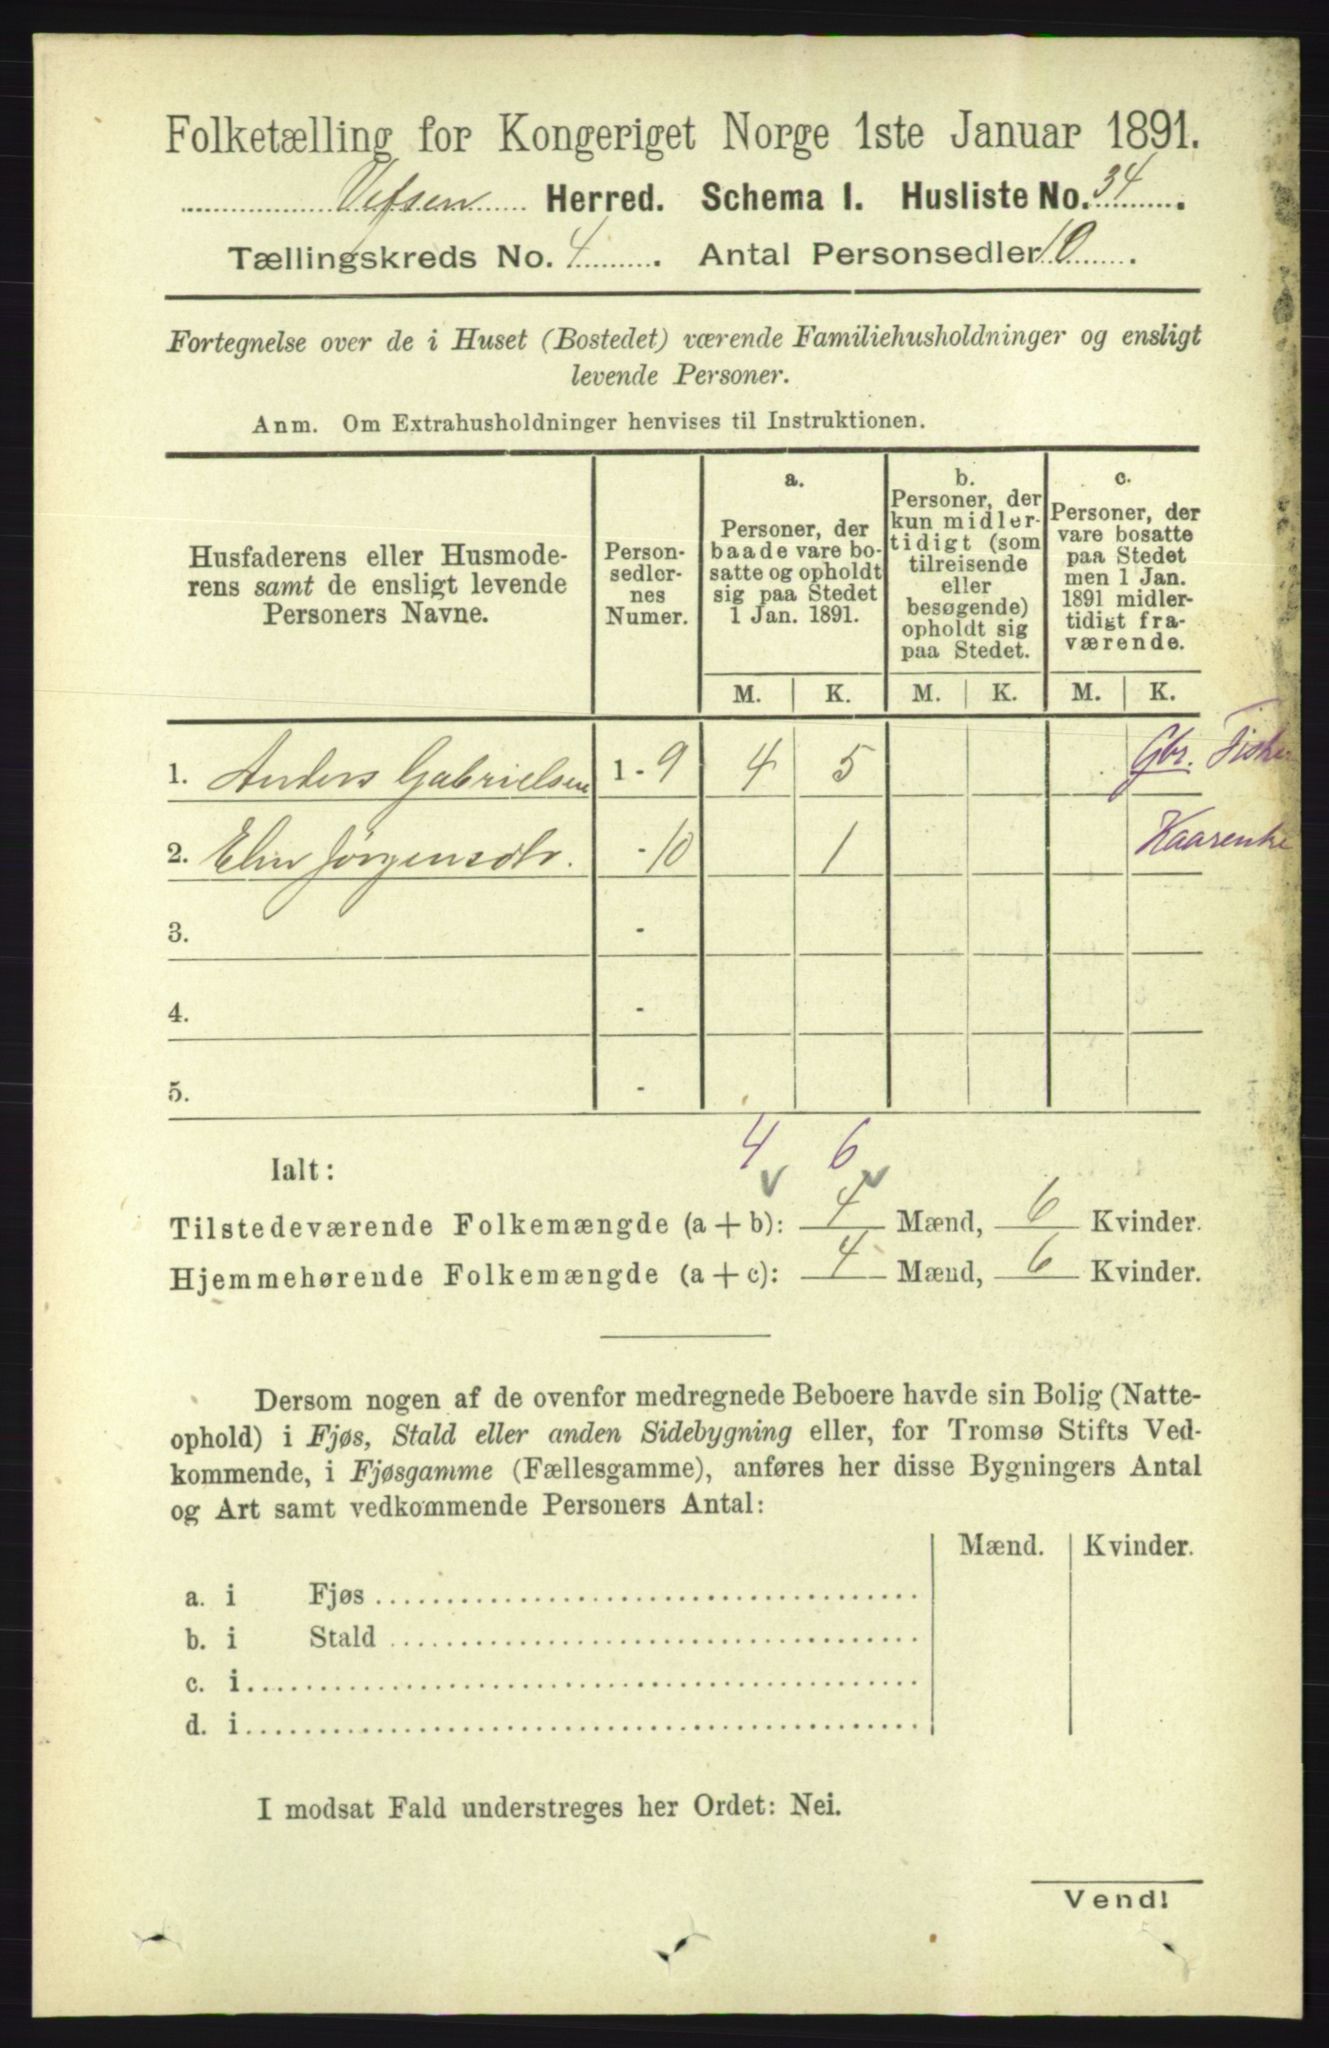 Folketælling for Kongeriget Norge 1ste Januar 1891.
Vefsen Herred. Schema I. Husliste No. 34.
Tællingskreds No. 4. Antal Personsedler 10.
Fortegnelse over de i Huset (Bostedet) værende Familiehusholdninger og ensligt
levende Personer.
Anm. Om Extrahusholdninger henvises til Instruktionen.
Husfaderens eller Husmode-
rens samt de ensligt levende
Personers Navne.
Person-
sedler-
nes
Numer.
a.
Personer, der
baade vare bo-
satte og opholdt
sig paa Stedet
1 Jan. 1891.
b.
Personer, der
kun midler-
tidigt (som
tilreisende
eller
besøgende)
opholdt sig
paa Stedet.
c.
Personer, der
vare bosatte
paa Stedet
men 1 Jan.
1891 midler-
tidigt fra-
værende.
M. K. M. K. M. K.
1. Anders Gabrielsen 1 - 9 4 5 Gbr. Fisker
2. Elen Jørgensdtr. - 10 1 Kaarenke
3. -
4. -
5. -
4 6
Ialt:
Tilstedeværende Folkemængde (a + b): 4 Mænd, 6 Kvinder.
Hjemmehørende Folkemængde (a + c): 4 Mænd, 6 Kvinder.
Dersom nogen af de ovenfor medregnede Beboere havde sin Bolig (Natte-
ophold) i Fjøs, Stald eller anden Sidebygning eller, for Tromsø Stifts Ved-
kommende, i Fjøsgamme (Fællesgamme), anføres her disse Bygningers Antal
og Art samt vedkommende Personers Antal:
Mænd. Kvinder.
a. i Fjøs
b. i Stald
c. i
d. i
I modsat Fald understreges her Ordet: Nei.
Vend!